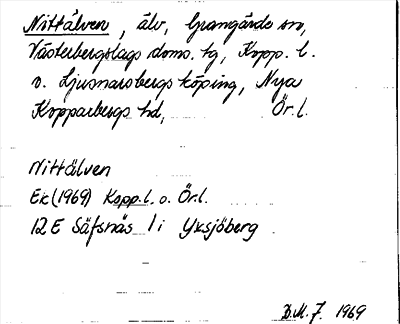 Nittälven, älv, Grangärde sn,
Västerbergslags doms. tg, Kopp. l.
o. Ljusnarsbergs köping, Nya
Kopparbergs hd, Ör. l.
Nittälven
Ek (1969) Kopp. l. o. Ör. l.
12 E Säfsnäs 1 i Yxsjöberg
D.M.F. 1969